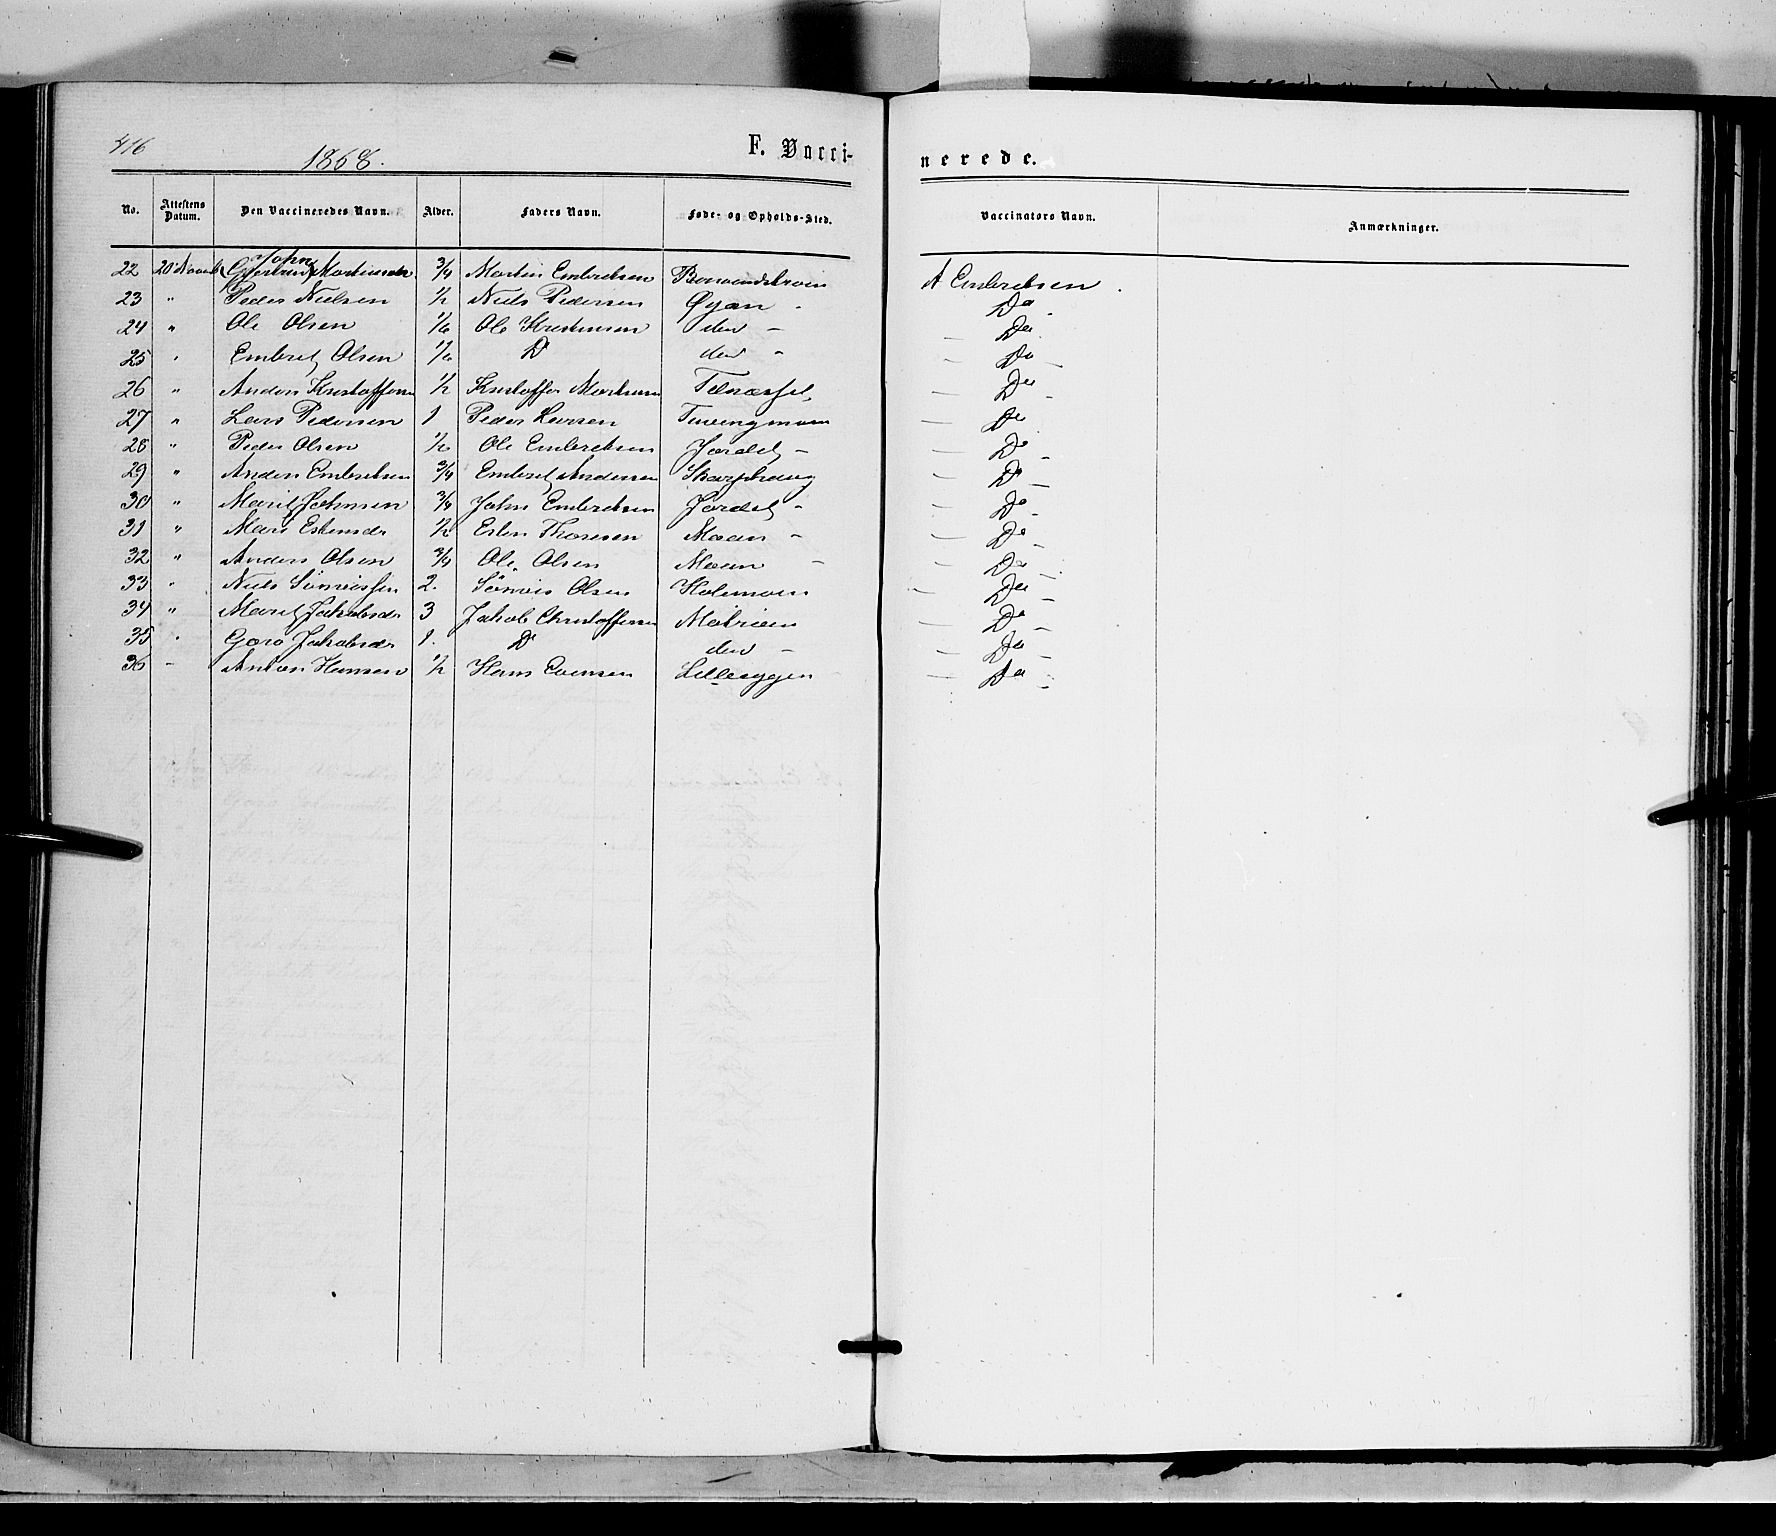 416
1868.
F. Vacci-
nerede.
No. Attestens Datum. Den Vaccineredes Navn. Alder. Faders Navn. Føde- og Opholds-Sted. Vaccinators Navn. Anmærkninger.
John
22 20 Novemb. (Gjertrud) 3/4 Martin Embretsen A Embretsen
23 " Peder Nielsen 1/2 Niels Pedersen Øyan - Do -
24 " Ole Olsen 1/6 Ole Kristensen den - Do
25 " Embret Olsen 1/6 D den - - Do -
26 " Anders Kristoffersen 1/2 Kristoffer Martinsen - Do -
27 " Lars Pedersen 1 Peder Larsen Tuvengmoen - Do
28 " Peder Olsen 1/2 Ole Embretsen Jordet - - Do -
29 " Anders Embretsen 3/4 Embret Andersen Skarphaug - Do -
30 " Marit Johnsen 3/4 John Embretsen Jordet - - Do -
31 " Mari Estensdr 1/2 Esten Thoresen Moan - - Do -
32 " Anders Olsen 3/4 Ole Olsen Moan - Do -
33 " Niels Simonsen 2. Simon Olsen Holemoen - Do -
34 " Marit Jakobsdr 3 Jakob Christoffersen - Do -
35 " Goro Jakobsdr 1. D den - - Do -
36 - Anton Hansen 1/2 Hans Evensen Lilleeggen - Do -